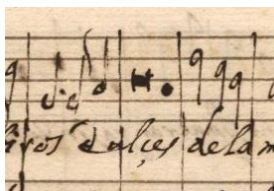 iros dulçes de la m